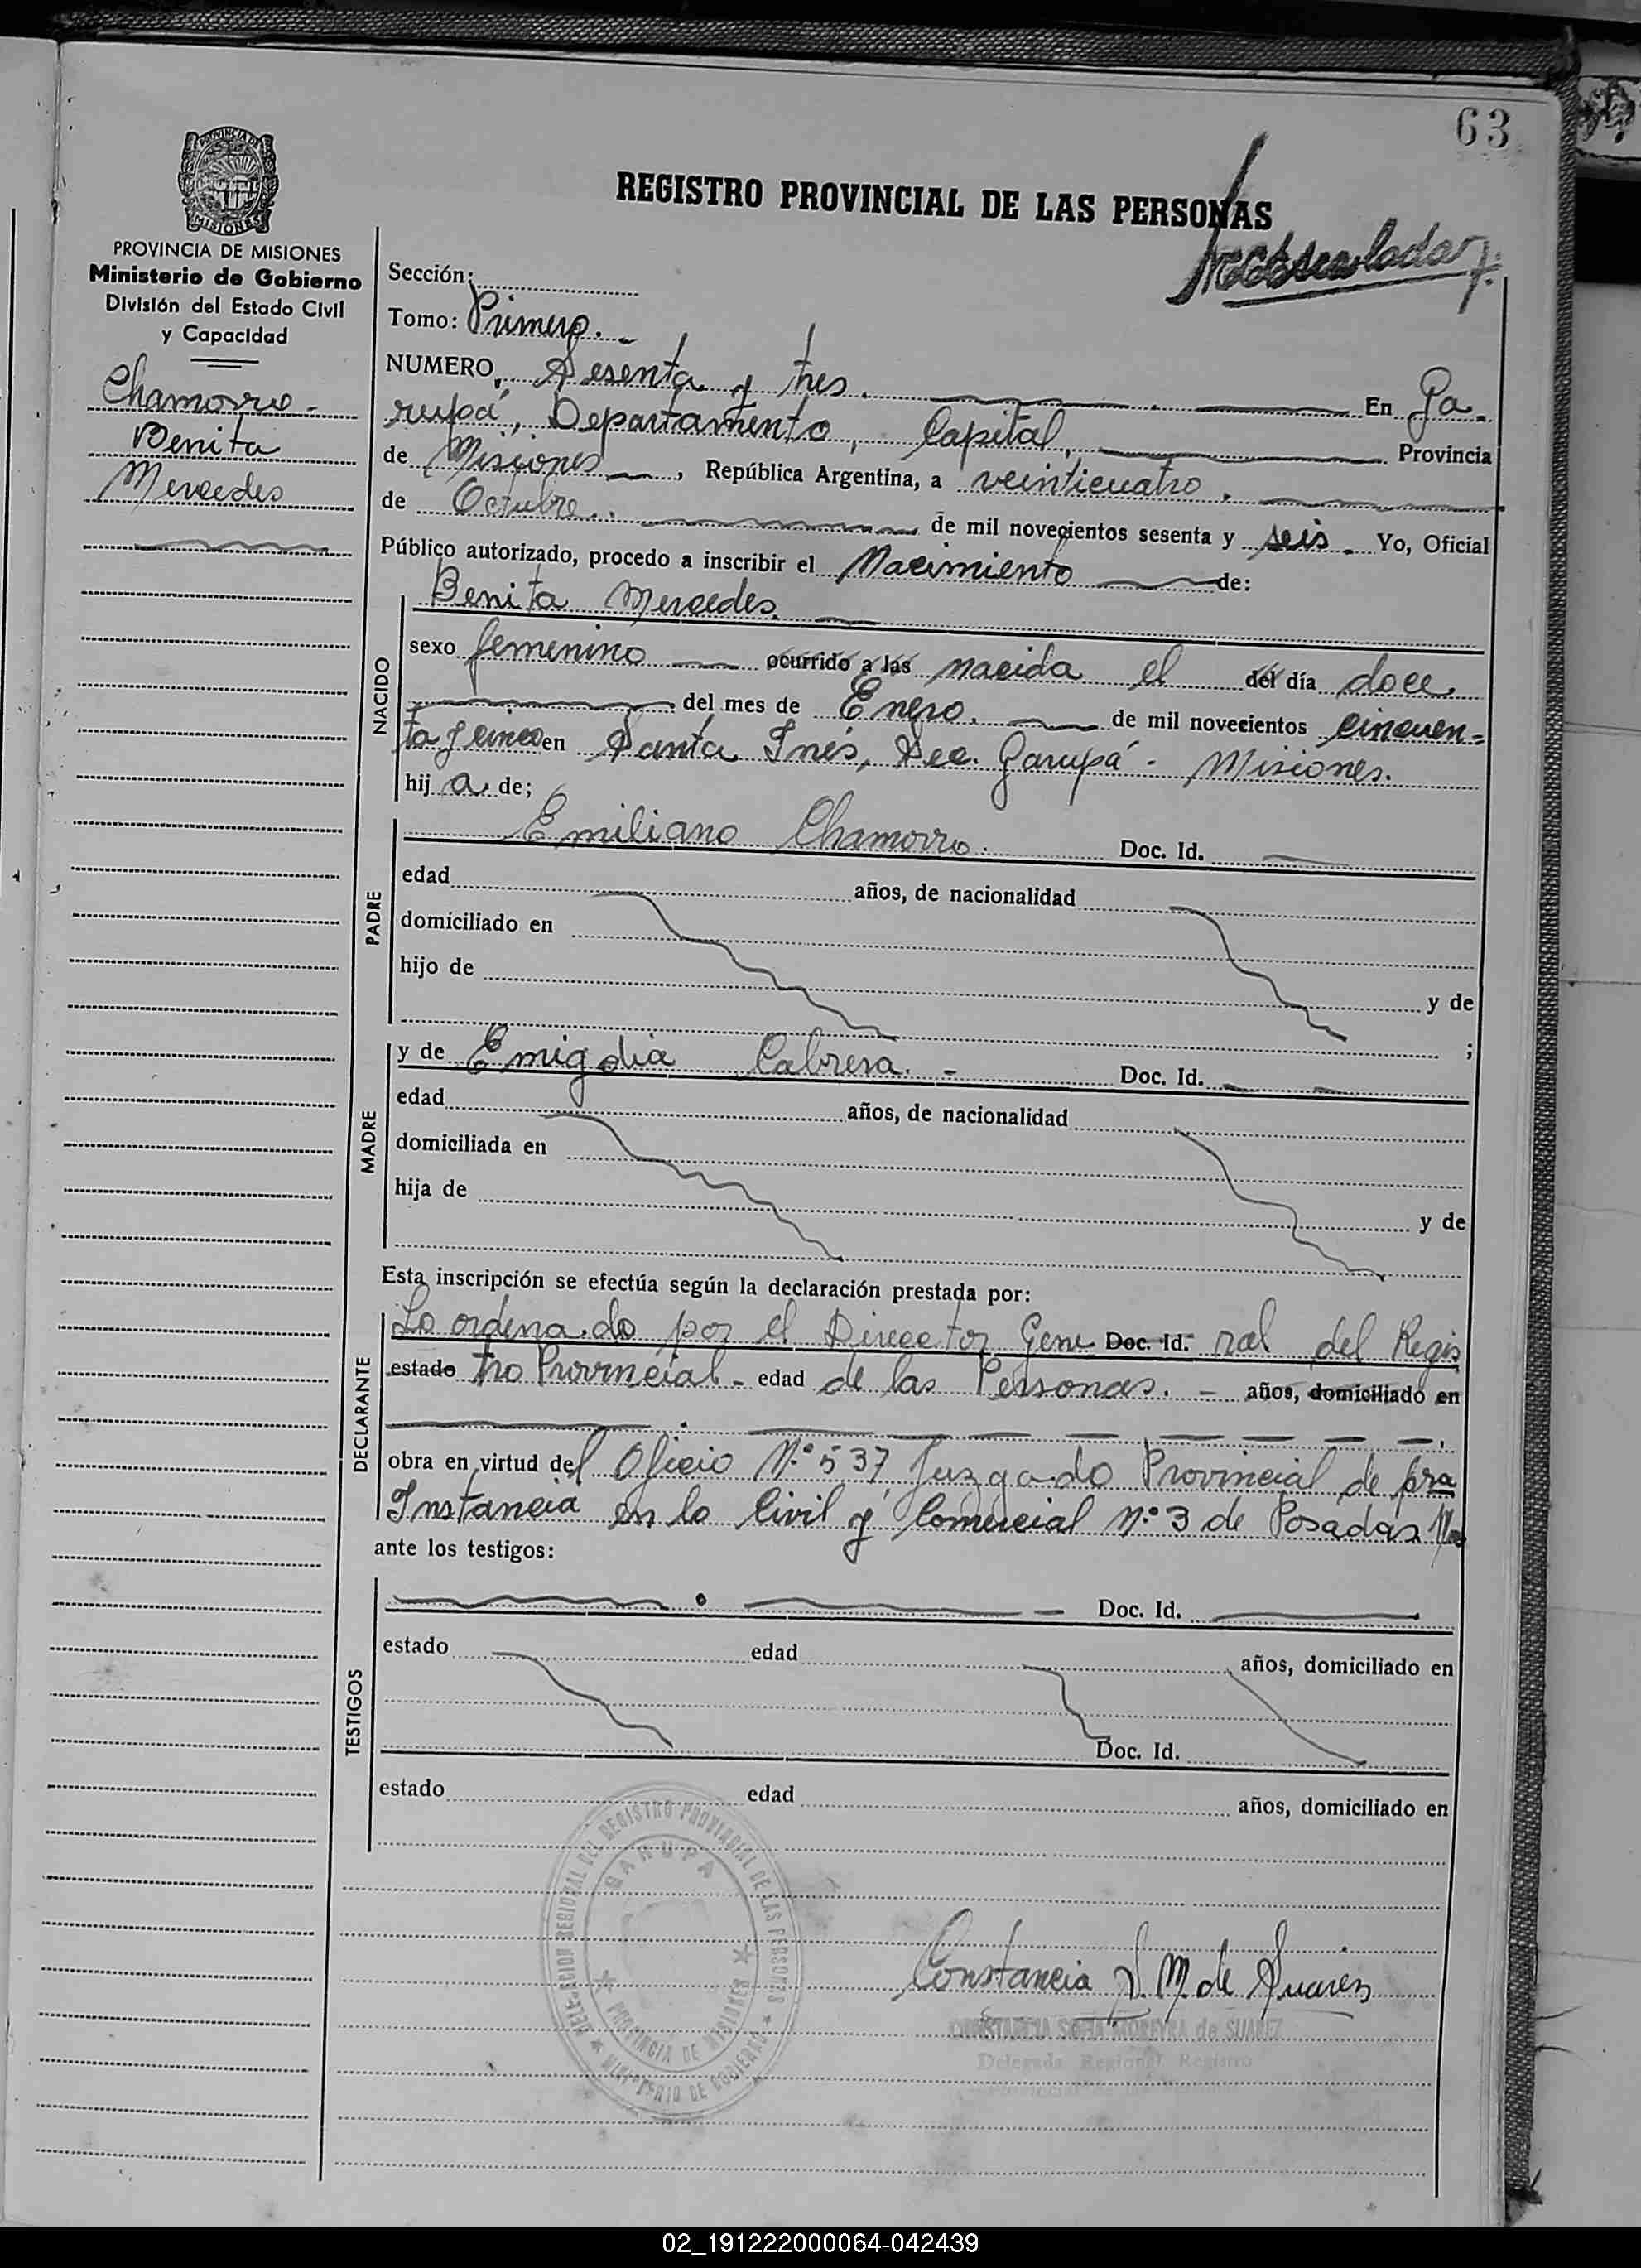 63
REGISTRO PROVINCIAL DE LAS PERSONAS
PROVINCIA DE MISIONES
Ministerio de Gobierno
División del Estado Civil
y Capacidad
Chamorro -
Benita
Mercedes
Sección:
Tomo: Primero. -
NUMERO, Sesenta y tres. En Ga-
rupá, Departamento, Capital, Provincia
de Misiones, República Argentina, a veinticuatro.
de Octubre. de mil novecientos sesenta y seis. Yo, Oficial
Público autorizado, procedo a inscribir el Nacimiento de:
Benita Mercedes.
NACIDO
sexo femenino ocurrido a las nacida el del día doce.
del mes de Enero. de mil novecientos cincuen=
ta y cinco en Santa Inés, Sec. Garupá - Misiones.
hij a. de;
PADRE
Emiliano Chamorro. Doc. Id.
edad años, de nacionalidad
domiciliado en
hijo de y de
;
MADRE
y de Emigdia Cabrera. - Doc. Id.
edad años, de nacionalidad
domiciliada en
hija de y de
Esta inscripción se efectúa según la declaración prestada por:
DECLARANTE
Lo ordenado por el Director Gene Doc. Id. ral del Regis
estado tro Provincial - edad de las Personas. - años, domiciliado en
obra en virtud del Oficio N.º 537, Juzgado Provincial de pra
Instancia en lo Civil y Comercial N.º 3 de Posadas
ante los testigos:
TESTIGOS
Doc. Id.
estado edad años, domiciliado en
Doc. Id.
estado edad años, domiciliado en
DELEGACION REGIONAL DEL REGISTRO PROVINCIAL DE LAS PERSONAS
GARUPA
PROVINCIA DE MISIONES
MINISTERIO DE GOBIERNO
Constancia S. M. de Suarez
CONSTANCIA SOFIA MOREYRA de SUAREZ
Delegada Regional Registro
Provincial de las Personas
02_191222000064-042439